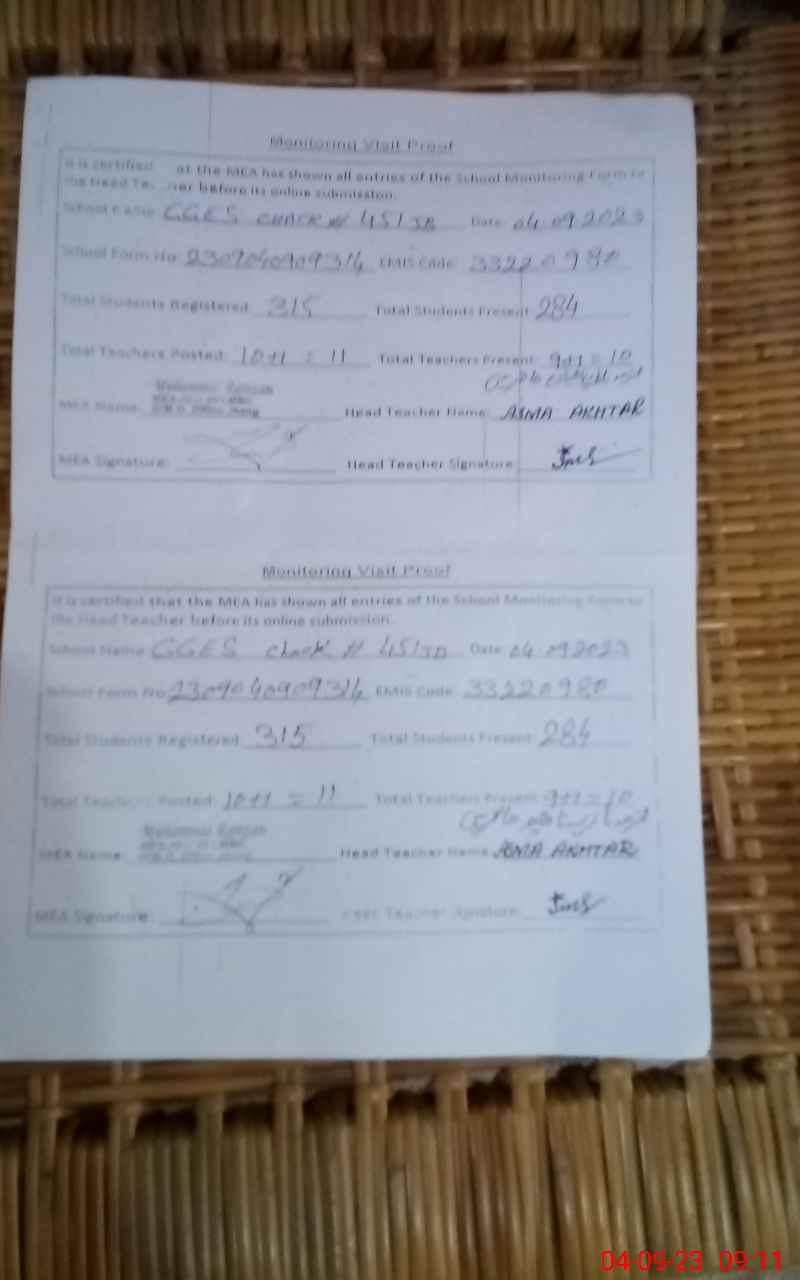 Monitoring Visit Proof
It is certified at the MEA has shown all entries of the School Monitoring Form to
the Head Teacher before its online submission.
School Name GGES CHACK # 451 JB Date: 04.09.2023
School Form No: 2309040909314 EMIS Code: 33220980
Total Students Registered: 315 Total Students Present: 284
Total Teachers Posted: 10+1 = 11 Total Teachers Present: 9+1 = 10
MEA Name: Head Teacher Name: ASMA AKHTAR
MEA Signature: Head Teacher Signature:
Monitoring Visit Proof
It is certified that the MEA has shown all entries of the School Monitoring Form to
the Head Teacher before its online submission.
School Name GGES Chack # 451 JB Date: 04.09.2023
School Form No: 2309040909314 EMIS Code: 33220980
Total Students Registered: 315 Total Students Present: 284
Total Teachers Posted: 10+1 = 11 Total Teachers Present: 9+1 = 10
MEA Name: Head Teacher Name: ASMA AKHTAR
MEA Signature: Teacher Signature:
04-09-23 09:11